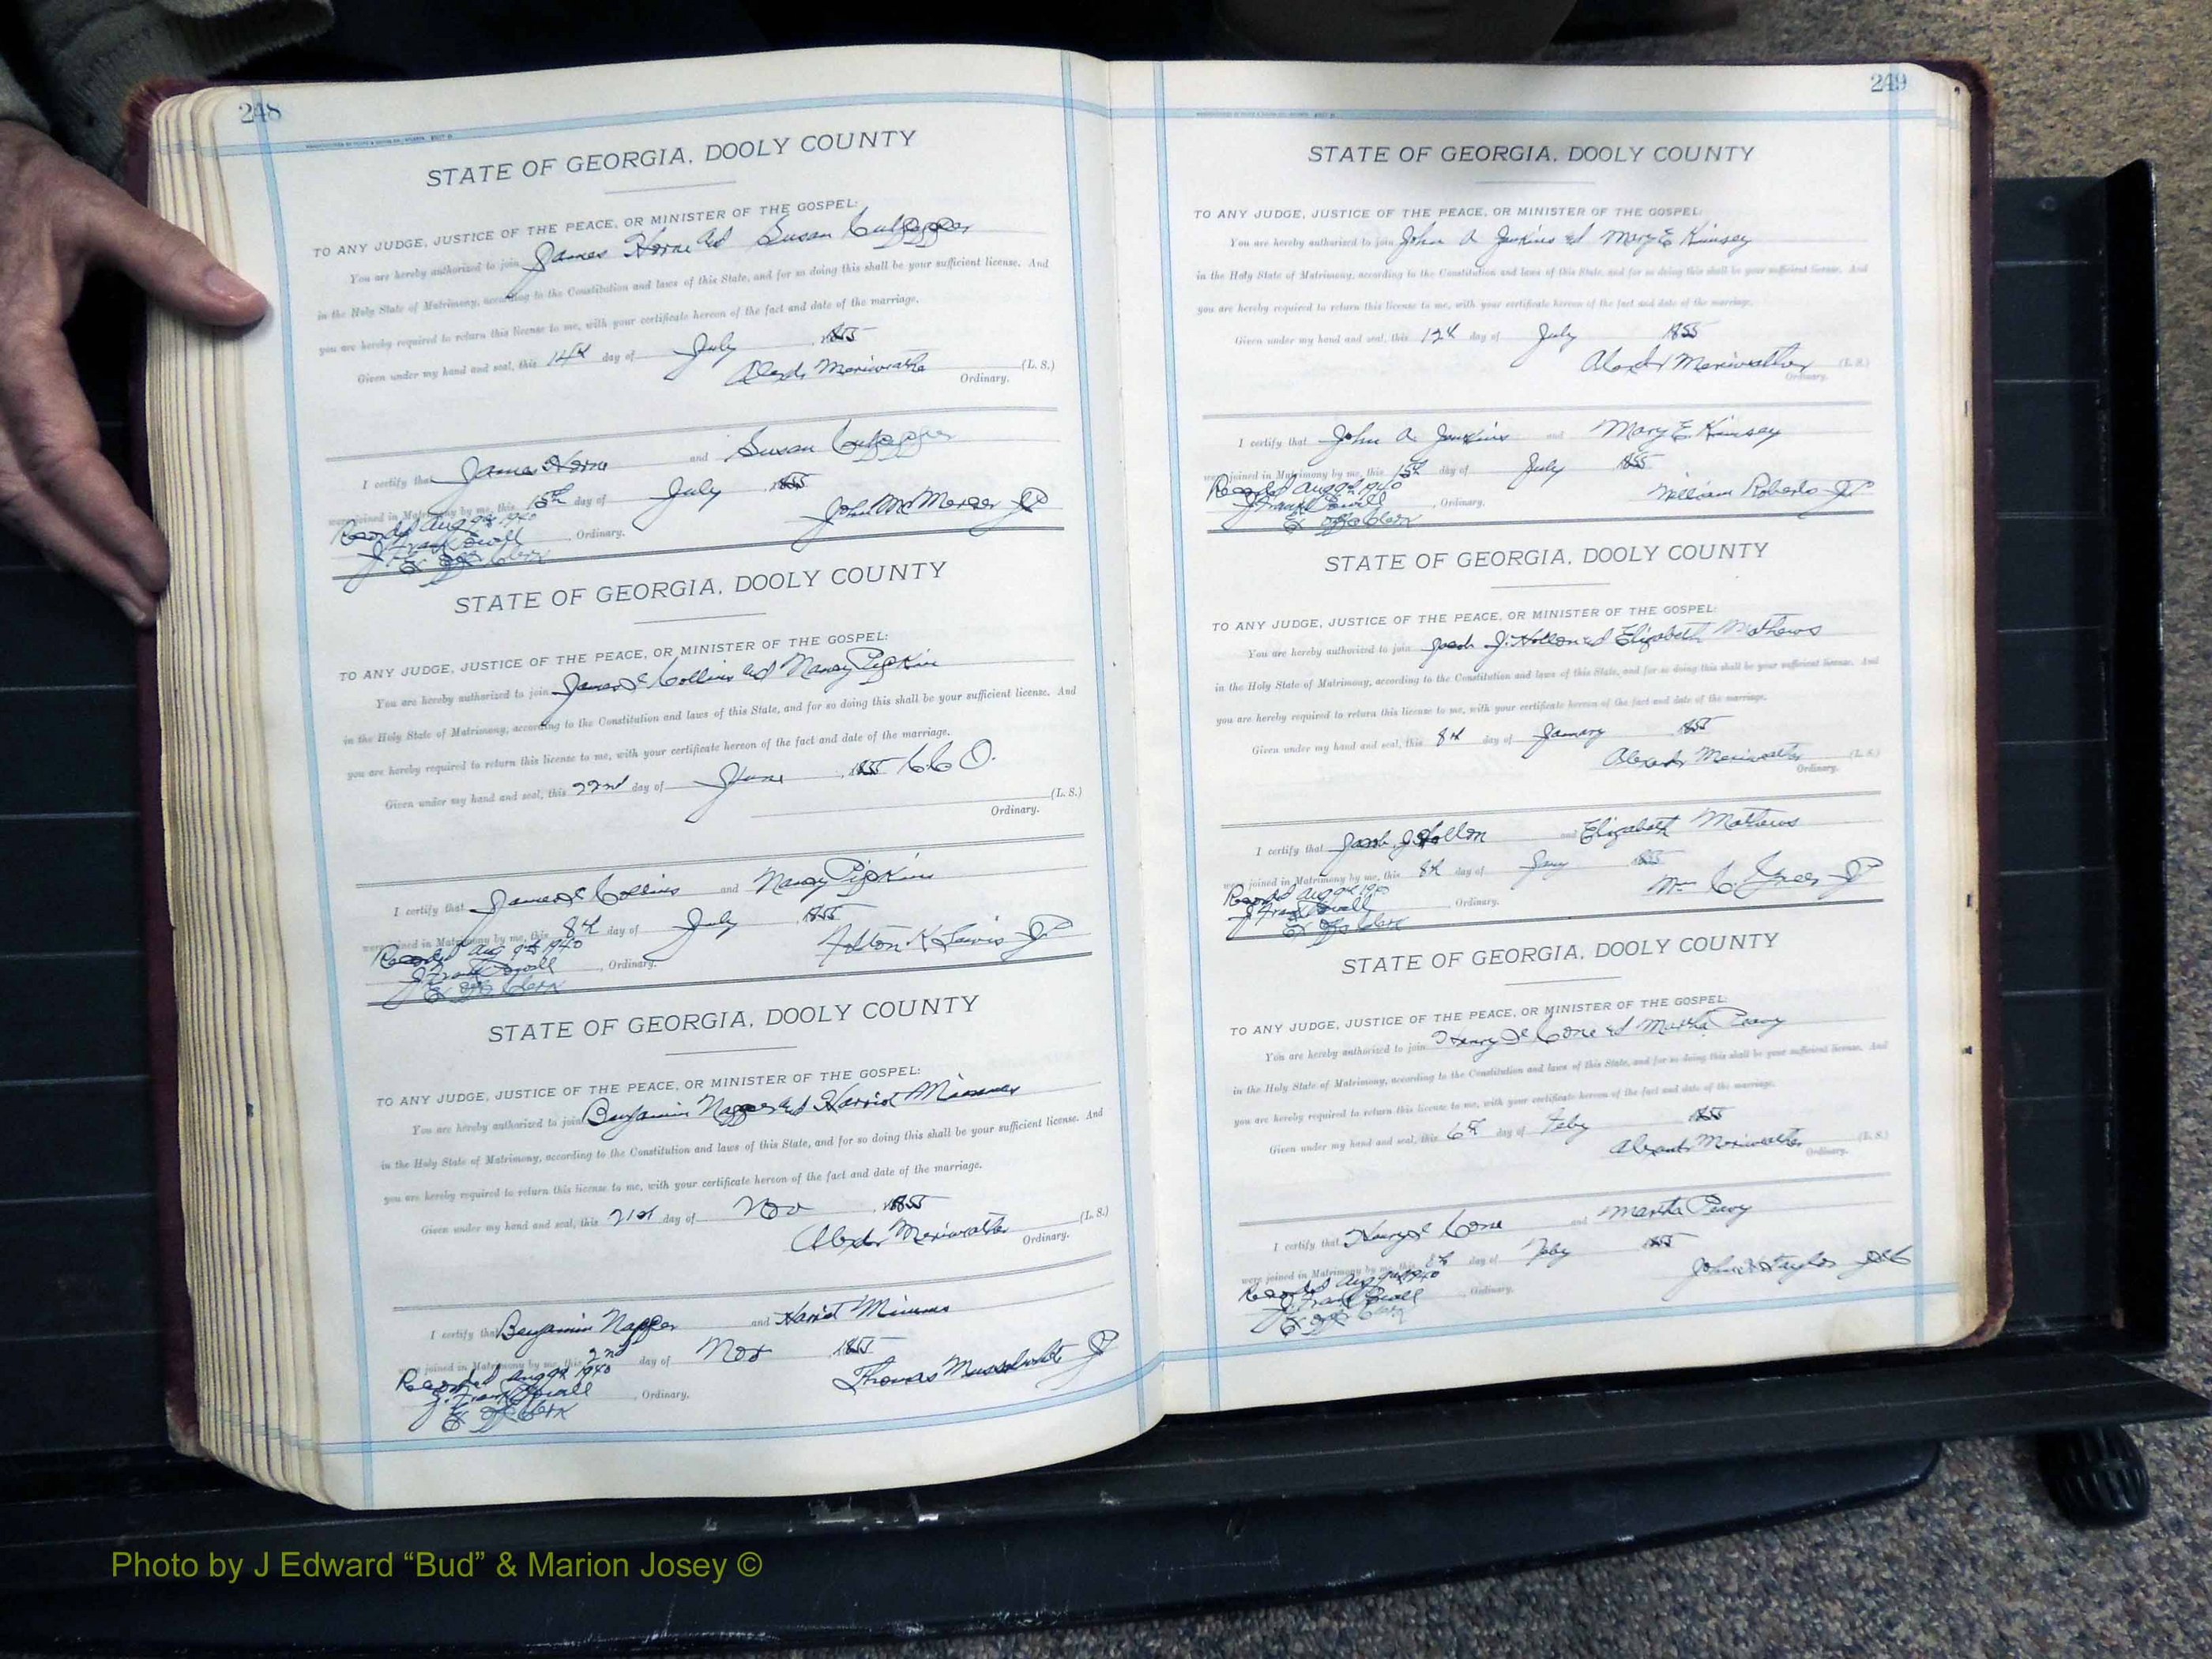 248
STATE OF GEORGIA, DOOLY COUNTY
TO ANY JUDGE, JUSTICE OF THE PEACE, OR MINISTER OF THE GOSPEL:
You are hereby authorized to join James Horne and Susan Culpepper
in the Holy State of Matrimony, according to the Constitution and laws of this State, and for so doing this shall be your sufficient license. And
you are hereby required to return this license to me, with your certificate hereon of the fact and date of the marriage.
Given under my hand and seal, this 14th day of July 1855
Alexdr Meriwether (L. S.)
Ordinary.
I certify that James Horne and Susan Culpepper
were joined in Matrimony by me, this 15th day of July 1855
Recorded Aug 9th 1940 John Mc Mercer JP
J. Frank Powell , Ordinary.
Ex off Clerk
STATE OF GEORGIA, DOOLY COUNTY
TO ANY JUDGE, JUSTICE OF THE PEACE, OR MINISTER OF THE GOSPEL:
You are hereby authorized to join James Collins and Nancy Pipkin
in the Holy State of Matrimony, according to the Constitution and laws of this State, and for so doing this shall be your sufficient license. And
you are hereby required to return this license to me, with your certificate hereon of the fact and date of the marriage.
Given under my hand and seal, this 22nd day of June 1855 C C O.
(L. S.)
Ordinary.
I certify that James Collins and Nancy Pipkin
were joined in Matrimony by me, this 8th day of July 1855
Recorded Aug 9th 1940 K Lewis JP
J Frank Powell , Ordinary.
Ex off Clerk
STATE OF GEORGIA, DOOLY COUNTY
TO ANY JUDGE, JUSTICE OF THE PEACE, OR MINISTER OF THE GOSPEL:
You are hereby authorized to join Benjamin Napper and Harriet Mimms
in the Holy State of Matrimony, according to the Constitution and laws of this State, and for so doing this shall be your sufficient license. And
you are hereby required to return this license to me, with your certificate hereon of the fact and date of the marriage.
Given under my hand and seal, this 21st day of Nov 1855
Alexdr Meriwether (L. S.)
Ordinary.
I certify that Benjamin Napper and Harriet Mimms
were joined in Matrimony by me, this 22nd day of Nov 1855
Recorded Aug 9th 1940 Thomas Musselwhite JP
J. Frank Powell , Ordinary.
Ex off Clerk
249
STATE OF GEORGIA, DOOLY COUNTY
TO ANY JUDGE, JUSTICE OF THE PEACE, OR MINISTER OF THE GOSPEL:
You are hereby authorized to join John A Jenkins and Mary E Kimsey
in the Holy State of Matrimony, according to the Constitution and laws of this State, and for so doing this shall be your sufficient license. And
you are hereby required to return this license to me, with your certificate hereon of the fact and date of the marriage.
Given under my hand and seal, this 12th day of July 1855
Alexdr Meriwether (L. S.)
Ordinary.
I certify that John A Jenkins and Mary E Kimsey
were joined in Matrimony by me, this 15th day of July 1855
Recorded Aug 9th 1940 William Roberts JP
J Frank Powell , Ordinary.
Ex off Clerk
STATE OF GEORGIA, DOOLY COUNTY
TO ANY JUDGE, JUSTICE OF THE PEACE, OR MINISTER OF THE GOSPEL:
You are hereby authorized to join Jacob J. Hollon and Elizabeth Mathews
in the Holy State of Matrimony, according to the Constitution and laws of this State, and for so doing this shall be your sufficient license. And
you are hereby required to return this license to me, with your certificate hereon of the fact and date of the marriage.
Given under my hand and seal, this 8th day of January 1855
Alexdr Meriwether (L. S.)
Ordinary.
I certify that Jacob J Hollon and Elizabeth Mathews
were joined in Matrimony by me, this 8th day of Jany 1855
Recorded Aug 9th 1940 Wm C Greer JP
J Frank Powell , Ordinary.
Ex off Clerk
STATE OF GEORGIA, DOOLY COUNTY
TO ANY JUDGE, JUSTICE OF THE PEACE, OR MINISTER OF THE GOSPEL:
You are hereby authorized to join Henry Cone and Martha Peavy
in the Holy State of Matrimony, according to the Constitution and laws of this State, and for so doing this shall be your sufficient license. And
you are hereby required to return this license to me, with your certificate hereon of the fact and date of the marriage.
Given under my hand and seal, this 6th day of Feby 1855
Alexdr Meriwether (L. S.)
Ordinary.
I certify that Henry Cone and Martha Peavy
were joined in Matrimony by me, this 8th day of Feby 1855
Recorded Aug 9th 1940 John Taylor
J. Frank Powell , Ordinary.
Ex off Clerk
Photo by J Edward “Bud” & Marion Josey ©